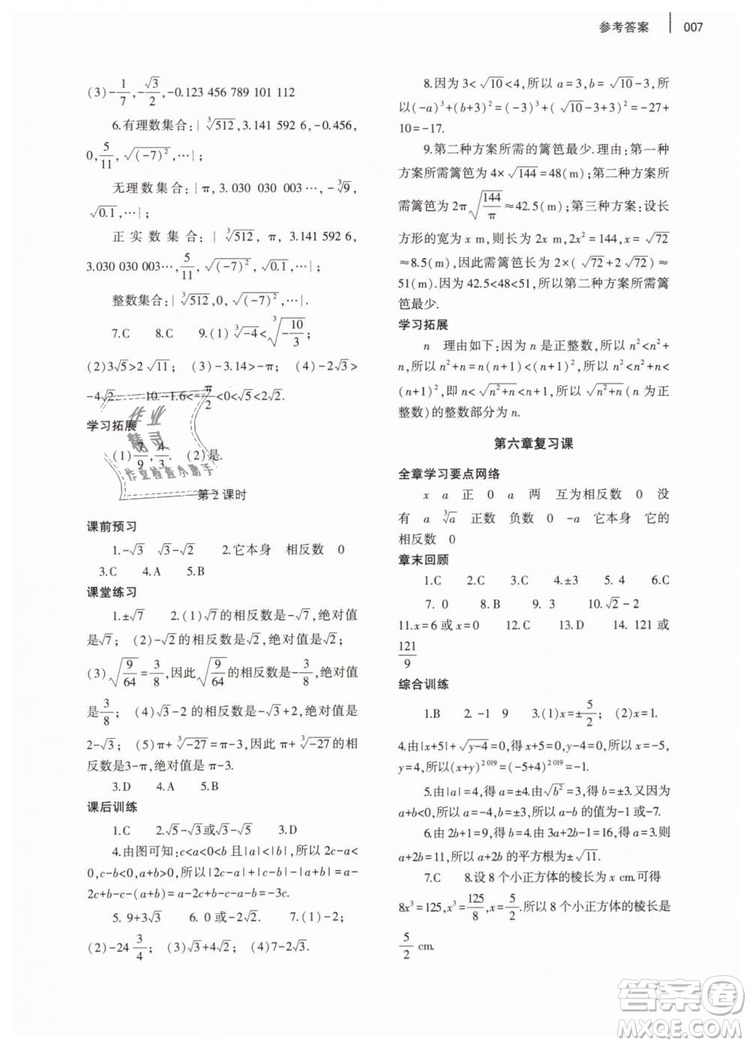 参考答案 007
(3)-1/7,-√3/2,-0.123 456 789 101 112
6.有理数集合:{∛512,3.141 592 6,-0.456,
0,5/11,√(-7)²,…};
无理数集合:{π,3.030 030 003…,-∛9,
√0.1,…};
正实数集合:{∛512,π,3.141 592 6,
3.030 030 003…,5/11,√(-7)²,√0.1,…};
整数集合:{∛512,0,√(-7)²,…};
7.C 8.C 9.(1)∛-4<∛-10/3;
(2)3√5>2√11; (3)-3.14>-π; (4)-2√3>
-4√2. 10.-1.6<-π/2<0<√5<2√3
学习拓展
(1)7/9,4/3. (2)是.
第2课时
课前预习
1.-√3 √3 2.它本身 相反数 0
3.C 4.A 5.B
课堂练习
1.±√7 2.(1)√7的相反数是-√7,绝对值
是√7; (2)-√2的相反数是√2,绝对值是√2;
(3)√9/64=3/8,因此√9/64的相反数是-3/8,绝对值
是3/8; (4)√3-2的相反数是-√3+2,绝对值是
2-√3; (5)π+∛-27=π-3,因此π+∛-27的相反
数是3-π,绝对值是π-3.
3.D 4.A 5.C 6.D
课后训练
1.C 2.√5-√3或√3-√5 3.D
4.由图可知:c<a<0<b且|a|<|b|,所以2c-a<
0,c-b<0,a+b>0,所以|2c-a|+|c-b|-|a+b|=
a-2c+b-c-(a+b)=a-2c+b-c-a-b=-3c.
5.9+3√3 6.0或-2√2 7.(1)√2
(2)-24 3/4; (3)√3+4√2; (4)-√2.
8.因为3<√10<4,所以a=3,b=√10-3,所
以(-a)³+(b+3)²=(-3)³+(√10-3+3)²=-27+
10=-17.
9.第二种方案所需的篱笆最少.理由:第一种
方案所需篱笆4×√144=48(m);第二种方案所
需篱笆2π√144/π≈42.5(m);第三种方案:设长
方形的宽为x m,则长为2x m,2x²=144,x=√72
≈8.5(m),因此需篱笆2×(√72+2√72)≈
51(m).因为42.5<48<51,所以第二种方案篱
笆最少.
学习拓展
n 理由如下:因为n是正整数,所以n²<n²+
n,因为n²+n=n(n+1)<(n+1)²,所以n²<n²+n<
(n+1)²,即n<√n²+n<n+1,所以√n²+n(n为正
整数)的整数部分为n.
第六章复习课
全章学习要点网络
x a 正 0 a 两 互为相反数 0 没
有 a ∛a 正数 负数 0 -a 它本身 它的
相反数 0
章末回顾
1.C 2.C 3.A 4.±3 5.4 6.C
7.0 8.B 9.3 10.√2-2
11.x=6或x=0 12.C 13.D 14.121或
121/9
综合训练
1.B 2.-1 9 3.(1)x=±5/2; (2)x=1.
4.由|x+5|+√y-4=0,得x+5=0,所以x=-5,
y=4,所以(x+y)²⁰¹⁹=(-5+4)²⁰¹⁹=-1.
5.由|a|=4,得a=±4.由√b²=3,得b=±3.又因为
a+b<0,所以a=-4,b=±3,所以a-b的值为-1或-7.
6.由2b+1=9,得b=4.由3a+2b-1=9+4²,得
a+2b=11,所以a+2b的平方根为±√11.
7.C 8.设8个小正方体的棱长为x cm.可得
8x³=125,x³=125/8,x=5/2.所以8个小正方体的棱长是
5/2 cm.
作业
精灵
作业检查小助手
答案圈
MXQE.COM